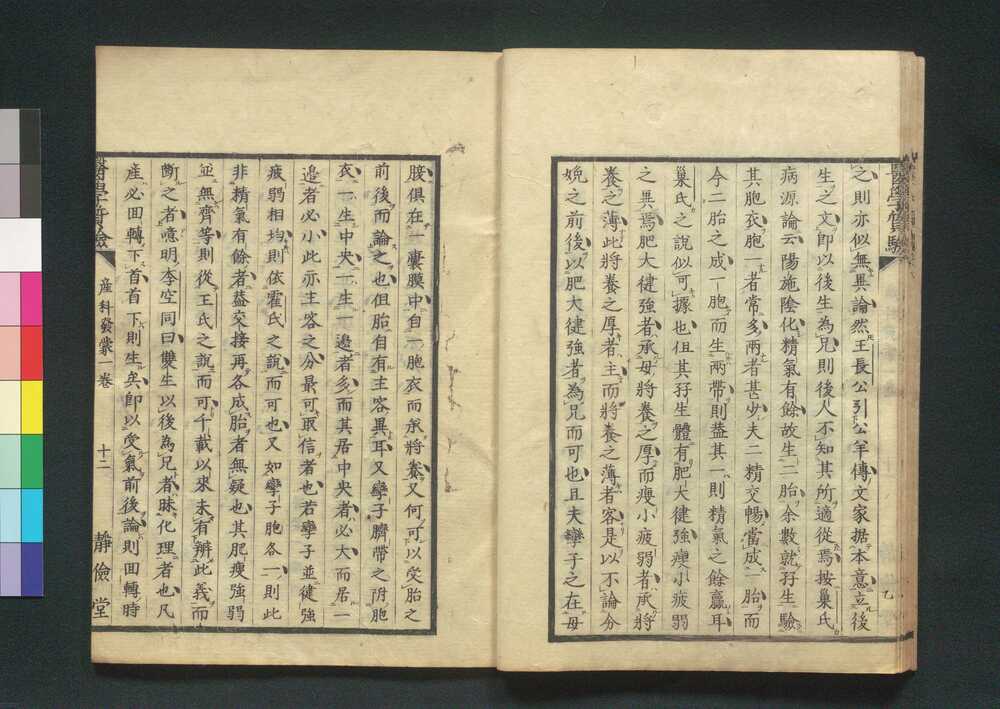 之則亦似無異論然王長公引公羊傳文家据本意立後
生之文即以後生為兄則後人不知其所適從焉按巢氏
病源論云陽施陰化精氣有餘故生二胎余數就孖生驗
其胞衣胞一者常多兩者甚少夫二精交暢當成一胎而
今二胎之成一胞而生兩帶則蓋其一則精氣之餘贏耳
巢氏之說似可據也但其孖生體有肥大徤強瘦小疲弱
之異焉肥大徤強者承母將養之厚而瘦小疲弱者承將
養之薄此將養之厚者主而將養之薄者客是以不論分
娩之前後以肥大徤強者為兄而可也且夫孿子之在母
腹俱在一囊膜中自一胞衣而承將養又何可以受胎之
前後而論之也但胎自有主客異耳又孿子臍帶之附胞
衣一生中央一生一邊者多而其居中央者必大而居一
邊者必小此亦主客之分最可取信者也若孿子並徤強
疲弱相均則依霍氏之說而可也又如孿子胞各一則此
非精氣有餘者蓋交接再各成胎者無疑也其肥瘦強弱
並無齊等則從王氏之說而可千載以來未有辨此義而
斷之者噫明李空同曰雙生以後為兄者昧化理者也凡
產必回轉下首首下則生矣即以受氣前後論則回轉時
醫學質驗
產科發蒙一卷
十二
靜儉堂